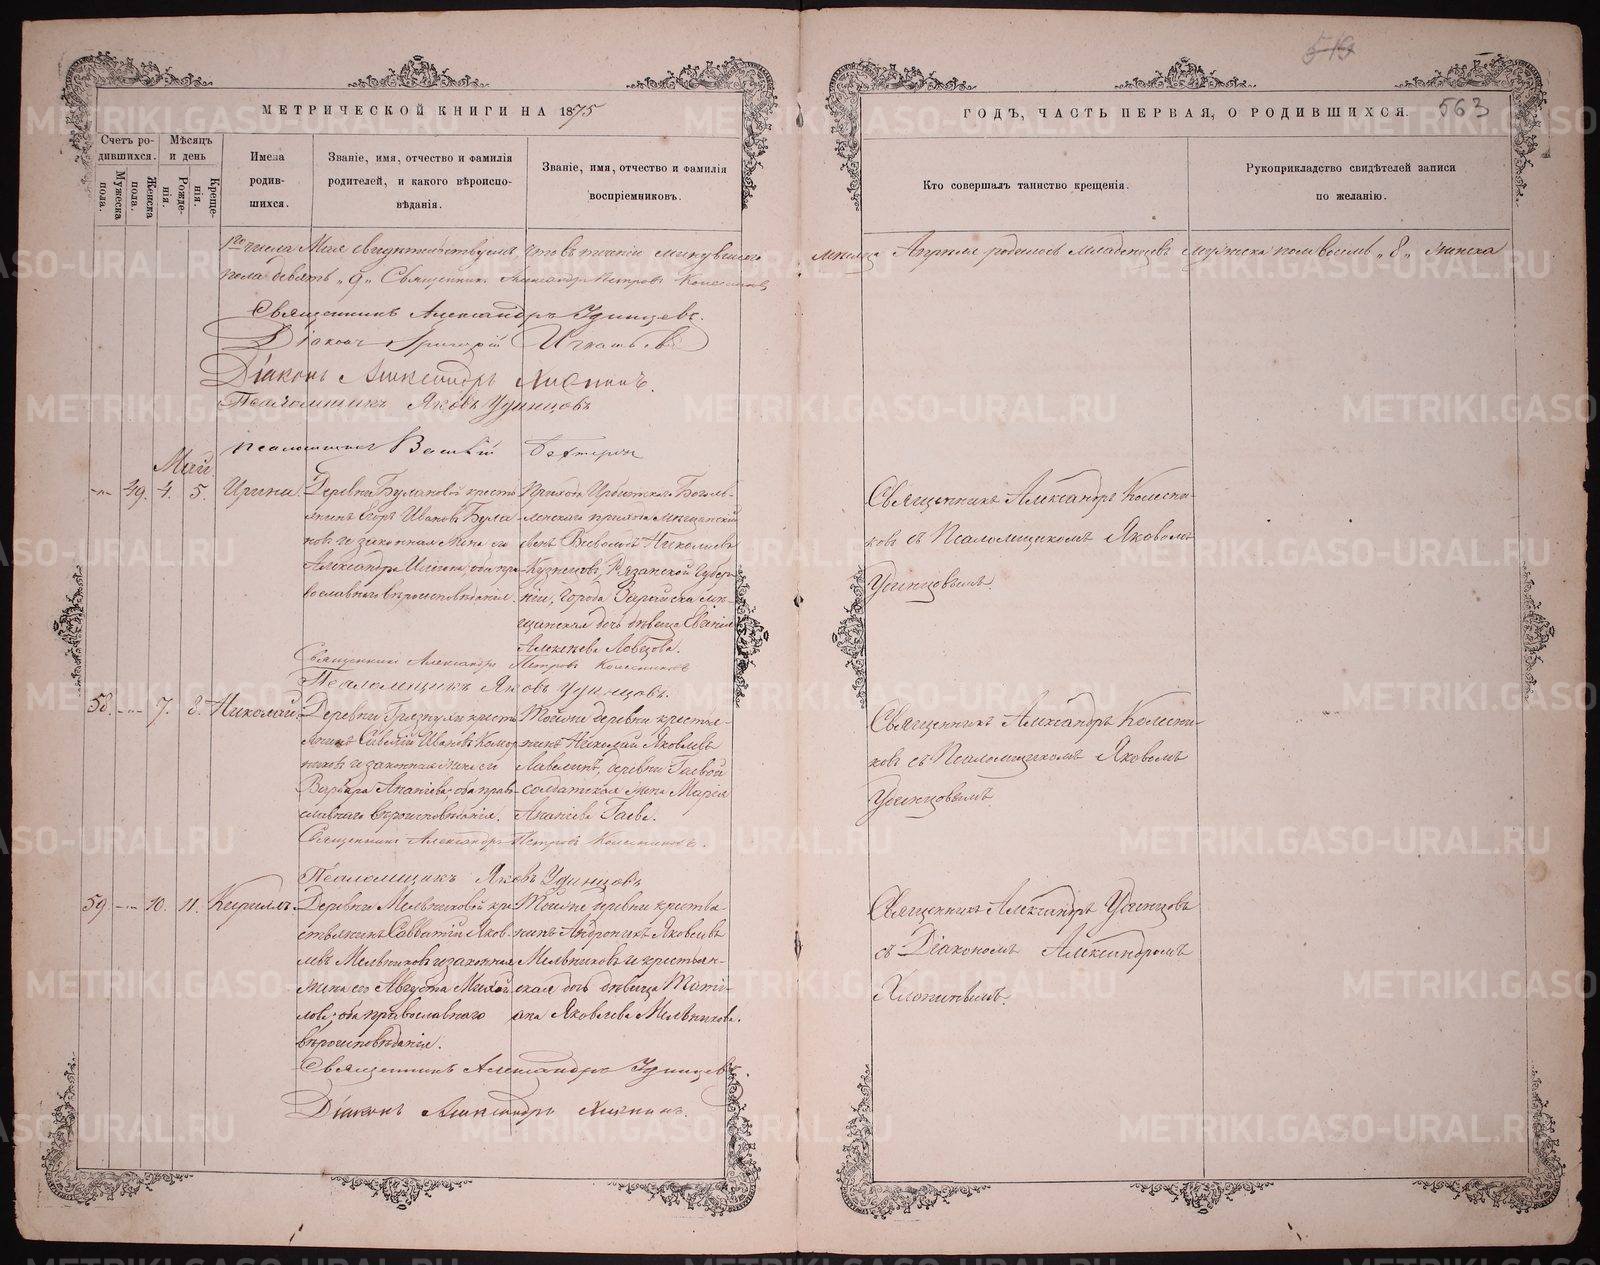 519
МЕТРИЧЕСКОЙ КНИГИ НА 1875
ГОДЪ, ЧАСТЬ ПЕРВАЯ, О РОДИВШИХСЯ. 563
Счетъ родившихся.
Мужеска пола.
Женска пола.
Мѣсяцъ и день
Рожденія.
Крещенія.
Имена родившихся.
Званіе, имя, отчество и фамилія родителей, и какого вѣроисповѣданія.
Званіе, имя, отчество и фамилія воспріемниковъ.
Кто совершалъ таинство крещенія.
Рукоприкладство свидѣтелей записи по желанію.
1го числа Мая свидѣтельствуемъ, что въ теченіе минувшаго мѣсяца Апрѣля родилось младенцевъ мужеска пола восемь „8„ женска
пола девять „9„ Священникъ Александръ Петровъ Колесниковъ
Священникъ Александръ Удинцевъ.
Діаконъ Григорій Игнатьевъ
Діаконъ Александръ Хлопинъ.
Псаломщикъ Яковъ Удинцовъ
псаломщикъ Василій
Май
„ 49. 4. 5. Ирина.
Деревни Булановой кресть-
янинъ Егоръ Ивановъ Була-
новъ и законная жена его
Александра Ильина, оба пра-
вославнаго вѣроисповѣданія.
Прихода Ирбитскаго Бого
ленскаго прихода мѣщанскій
сынъ Всеволодъ Николаевъ
Кузнецовъ, Рязанской губер-
ніи, города Зарайска мѣ-
щанская дочь дѣвица Евгенія
Алексѣева Ловцова.
Священникъ Александръ Колесни-
ковъ съ Псаломщикомъ Яковомъ
Удинцовымъ.
Священникъ Александръ Петровъ Колесниковъ
Псаломщикъ Яковъ Удинцовъ.
58. „ 7. 8. Николай.
Деревни Грязнухи кресть-
янинъ Савелій Ивановъ Комор-
никовъ и законная жена его
Варвара Ананіева, оба право-
славнаго вѣроисповѣданія.
Тойже деревни крестья-
нинъ Николай Яковлевъ
деревни Гаевой
солдатская жена Марія
Ананіева Гаева.
Священникъ Александръ Колесни-
ковъ съ Псаломщикомъ Яковомъ
Удинцовымъ.
Священникъ Александръ Петровъ Колесниковъ.
Псаломщикъ Яковъ Удинцовъ
59. „ 10. 11. Кириллъ.
Деревни Мельниковой кре-
стьянинъ Савватій Яков-
левъ Мельниковъ и законная
жена его Августа Михай-
лова, оба православнаго
вѣроисповѣданія.
Тойже деревни крестья-
нинъ Андроникъ Яковлевъ
Мельниковъ и крестьян-
ская дочь дѣвица Тати-
ана Яковлева Мельникова.
Священникъ Александръ Удинцовъ
съ Діакономъ Александромъ
Хлопинымъ.
Священникъ Александръ Удинцевъ
Діаконъ Александръ Хлопинъ.
METRIKI.GASO-URAL.RU